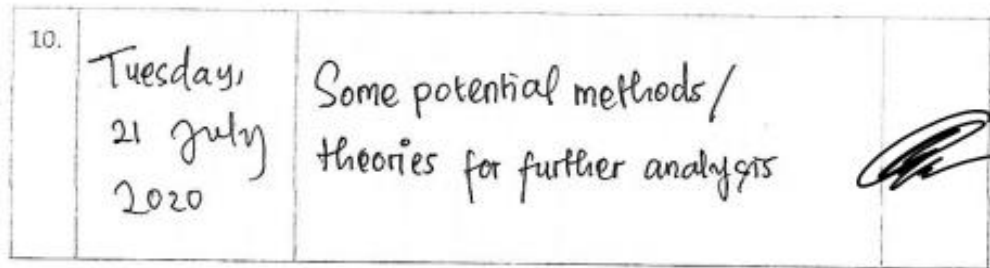 10.
Tuesday,
21 July
2020
Some potential methods/
theories for further analysis